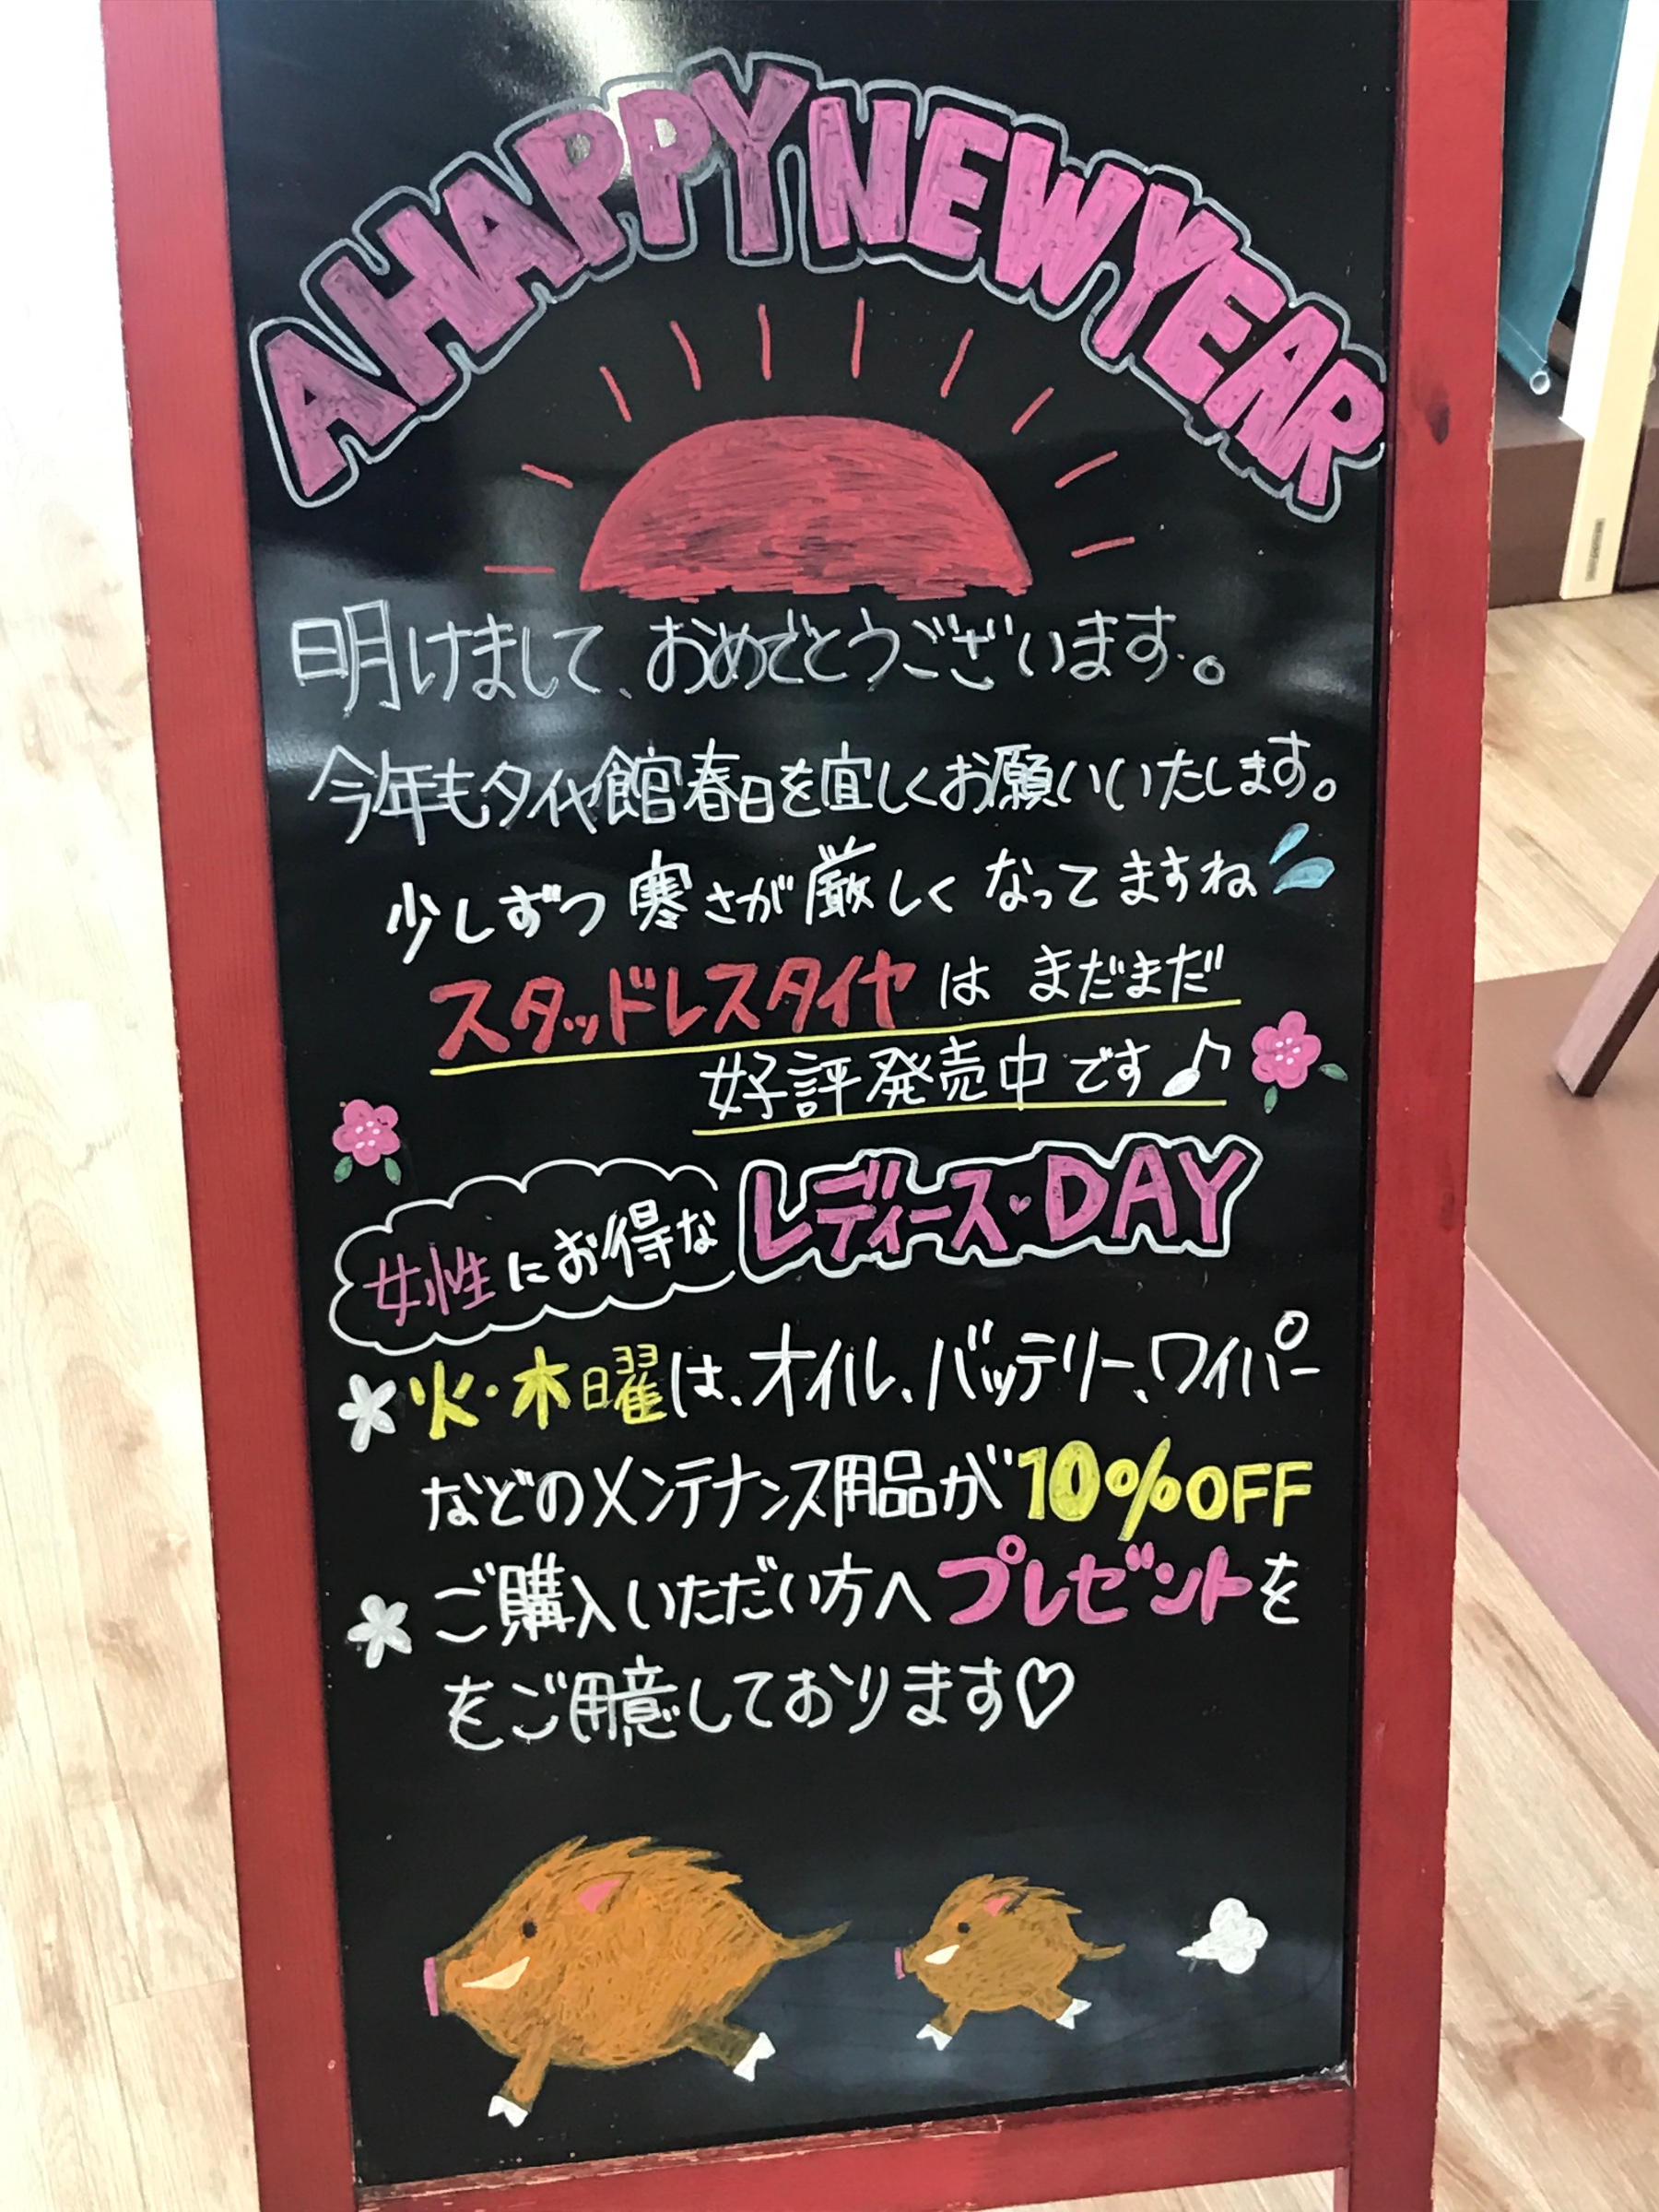 A HAPPY NEW YEAR
明けまして、おめでとうございます。
今年もタイヤ館春日を宜しくお願いいたします。
少しずつ寒さが厳しくなってますね
スタッドレスタイヤは まだまだ
好評発売中です♪
女性にお得な レディース・DAY
火・木曜は、オイル、バッテリー、ワイパー
などのメンテナンス用品が10%OFF
ご購入いただい方へプレゼントを
をご用意しております♡